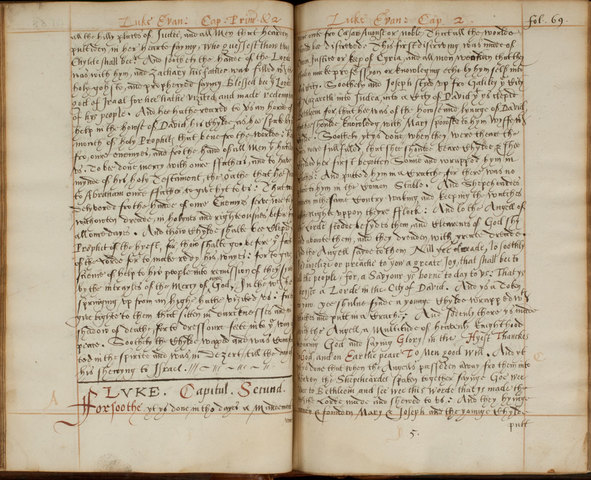 Luke Evan: Cap: Prim: & 2
all the hilly places of Judee, and all Men that hearden
putteden in her hearte saying, Who guessest thou this
Chylde shall bee? And soothly the hande of the Lorde
was with hym, and Zachary his father was fulfilled with
holy ghost, and prophesyed saying Blessed bee ye Lord
God of Israel for hee hathe visited, and made redempcion
of his people. And hee hathe rered to us an horne of
help in the house of David his chylde, as hee spak by ye
mouth of holy Prophets, that bene fro the worlde:
fro oure enemyes, and fro the hande of all Men that hateden
us. To be done mercy with oure ffathers, and to have
mynde of his holy Testament, the oathe that hee swore
to Abraham oure ffather, to give hym to us: That
delivered fro the hande of oure Enemyes serve to hym
withouten dreede, in holynes and rightwisnes before hym
all oure dayes. And thou chylde shalt bee cleped
Prophet of the hyest, for thou shalt goe before ye face
of the Lorde for to make redy his wayes: for to give
science of help to his people into remission of their synnes
by the intrayles of the Mercy of oure God, In the which
springing up from an highe hathe visited us: for to
give light to them that sitten in durknesses and in
shadow of deathe, for to dresse oure feete into ye way of
peace. Soothly the Chylde waxed and was comforted
in the spirite and was in desert, till the day of
his shewyng to Israel.
A
LVKE. Capitul. Secund.
Forsoothe yt ys done in tho dayes a Mandement
Luke Evan: Cap. 2.
fol. 69.
went fro Cesar August or noble, That all the worlde
shuld be discrived. This first discriving was made of
Cyrin, Justice or kep of Cyria, and all men wenten that they
make profession or knowledging eche by hym self into
Citty. Soothly and Joseph steid up fro Galilee ye Citty
Nazareth into Judea, into a Citty of David ys cleped
Bethleem for that hee was of the house and lynage of David
knowledg with Mary spoused to hym Wyff
Soothly yt ys done, when they were there the
were fulfilled, that shee shulde beare chylde & shee
bared her first begotten Sonne and wrapped hym in
clothes And putted hym in a Cratche, for there was no
place to hym in the Comon Stable. And Shepeheardes
weren in the same Cuntry waking and keeping the Watches
of the night uppon there fflock: And lo the Angell of
ye Lorde stoode besyde them, and Clerenesse of God shyned
aboute them, and they dreaden with greate dreede
and the Angell sayde to them Nill yee dreade, lo soothly
I evangelize or preache to you a greate Joy, that shall bee to
all people, for a Saviour ys borne to day to us: That ys
Criste a Lorde in the Citty of David. And ys a Token
to you yee shulde finde a younge Chylde wrapped in
clothes and putt in a Cratche. And sudenly there ys made
with the Angell a Multitude of heavenly knighthood
praysing God and saying Glory in the Hyest Thankes
to God, and in Earthe peace To Men good will. And yt
ys done that when the Angels passeden away fro them into
heaven the Shepeheardes spaken togyther saying: Goe wee
to Bethleem and see wee this worde that ys made that
Lorde made and shewed to us: And they hyinge
camen & founden Mary & Joseph and the younge Chylde
C
5.
putt